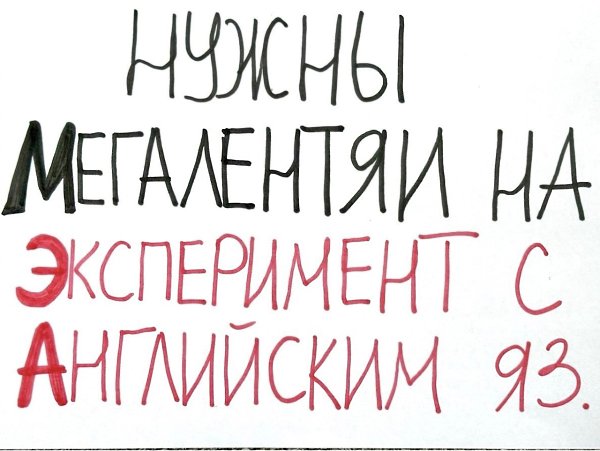 НУЖНЫ
МЕГАЛЕНТЯИ НА
ЭКСПЕРИМЕНТ С
АНГЛИЙСКИМ ЯЗ.